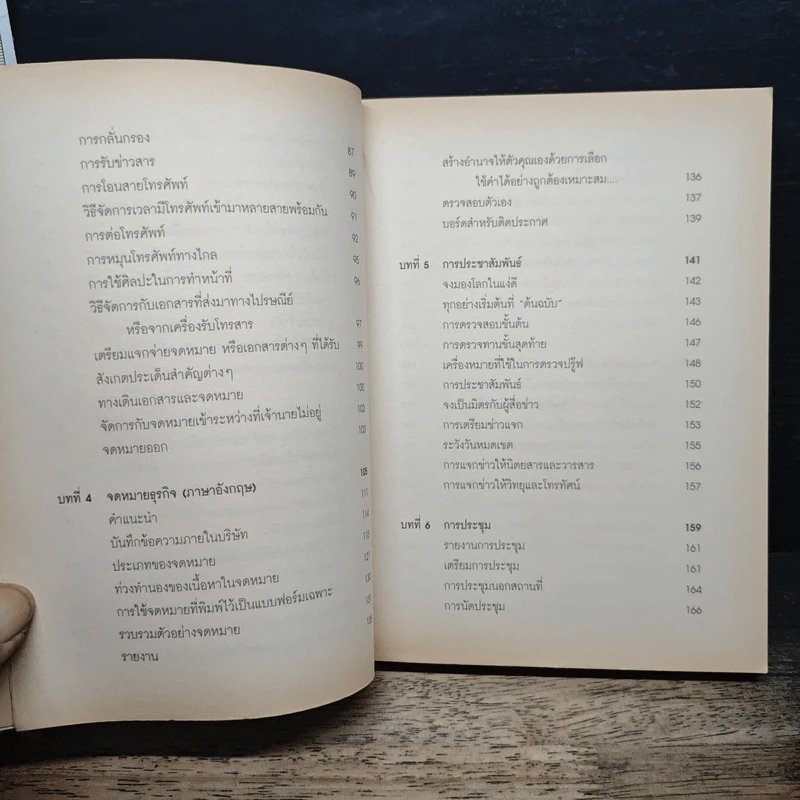 การกลั่นกรอง 87
การรับข่าวสาร 89
การโอนสายโทรศัพท์ 90
วิธีจัดการเวลามีโทรศัพท์เข้ามาหลายสายพร้อมกัน 91
การต่อโทรศัพท์ 92
การหมุนโทรศัพท์ทางไกล 95
การใช้ศิลปะในการทำหน้าที่ 96
วิธีจัดการกับเอกสารที่ส่งมาทางไปรษณีย์
หรือจากเครื่องรับโทรสาร 97
เตรียมแจกจ่ายจดหมาย หรือเอกสารต่างๆ ที่ได้รับ 99
สังเกตประเด็นสำคัญต่างๆ 100
ทางเดินเอกสารและจดหมาย 100
จัดการกับจดหมายเข้าระหว่างที่เจ้านายไม่อยู่ 102
จดหมายออก 103
บทที่ 4 จดหมายธุรกิจ (ภาษาอังกฤษ) 105
คำแนะนำ 111
บันทึกข้อความภายในบริษัท 114
ประเภทของจดหมาย 115
ท่วงทำนองของเนื้อหาในจดหมาย 121
การใช้จดหมายที่พิมพ์ไว้เป็นแบบฟอร์มเฉพาะ
รวบรวมตัวอย่างจดหมาย
รายงาน
สร้างอำนาจให้ตัวคุณเองด้วยการเลือก
ใช้คำได้อย่างถูกต้องเหมาะสม.... 136
ตรวจสอบตัวเอง 137
บอร์ดสำหรับติดประกาศ 139
บทที่ 5 การประชาสัมพันธ์ 141
จงมองโลกในแง่ดี 142
ทุกอย่างเริ่มต้นที่ "ต้นฉบับ" 143
การตรวจสอบขั้นต้น 146
การตรวจทานขั้นสุดท้าย 147
เครื่องหมายที่ใช้ในการตรวจปรู๊ฟ 148
การประชาสัมพันธ์ 150
จงเป็นมิตรกับผู้สื่อข่าว 152
การเตรียมข่าวแจก 153
ระวังวันหมดเขต 155
การแจกข่าวให้นิตยสารและวารสาร 156
การแจกข่าวให้วิทยุและโทรทัศน์ 157
บทที่ 6 การประชุม 159
รายงานการประชุม 161
เตรียมการประชุม 161
การประชุมนอกสถานที่ 164
การนัดประชุม 166